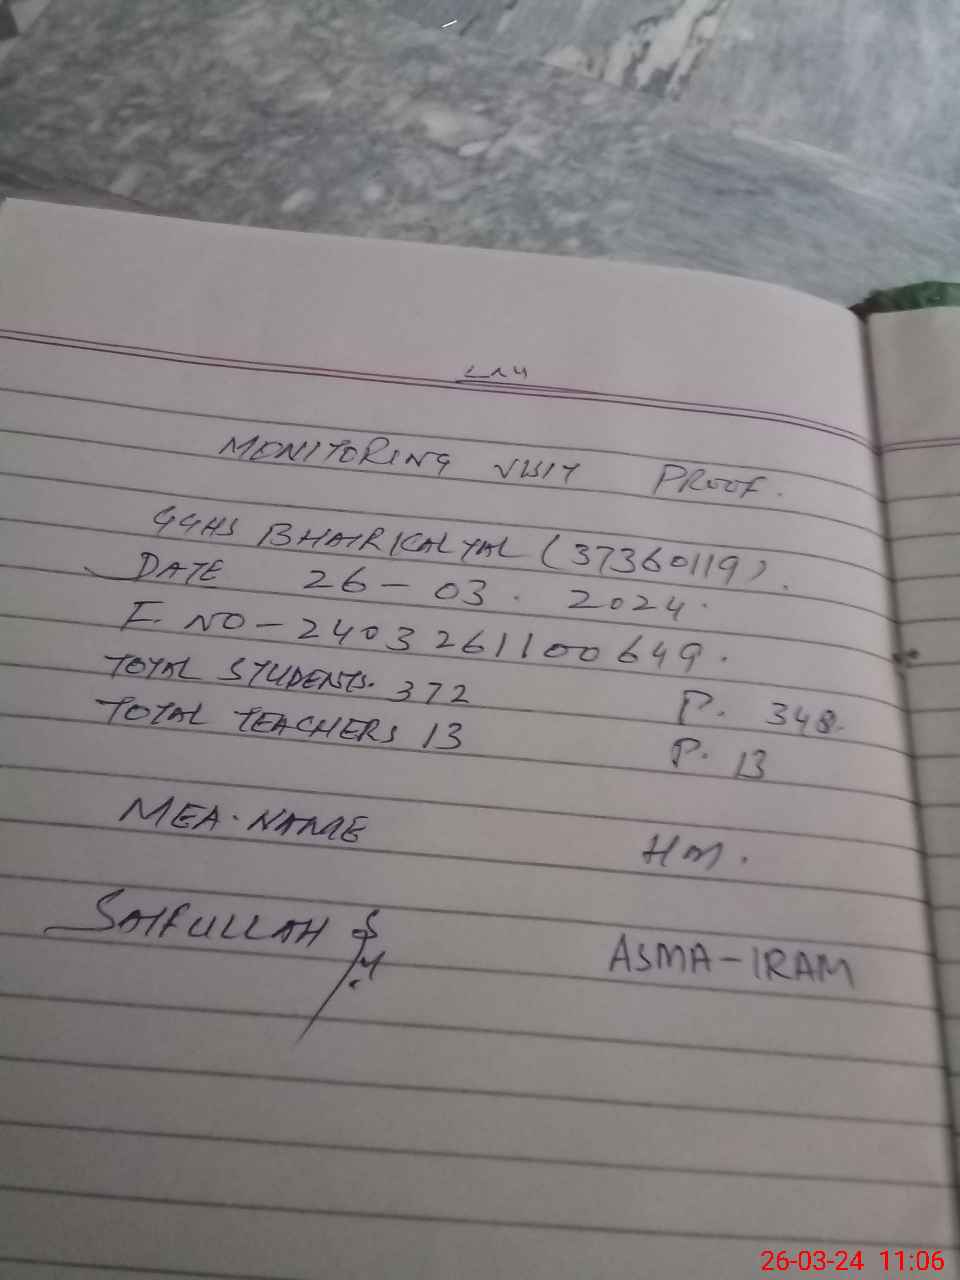 MONITORING VISIT PROOF.
GGHS BHAIRIKALYAL (37360119).
DATE 26-03. 2024.
F. NO-2403261100649.
TOTAL STUDENTS. 372 P. 348.
TOTAL TEACHERS 13 P. 13
MEA. NAME HM.
SAIFULLAH ASMA-IRAM
26-03-24 11:06